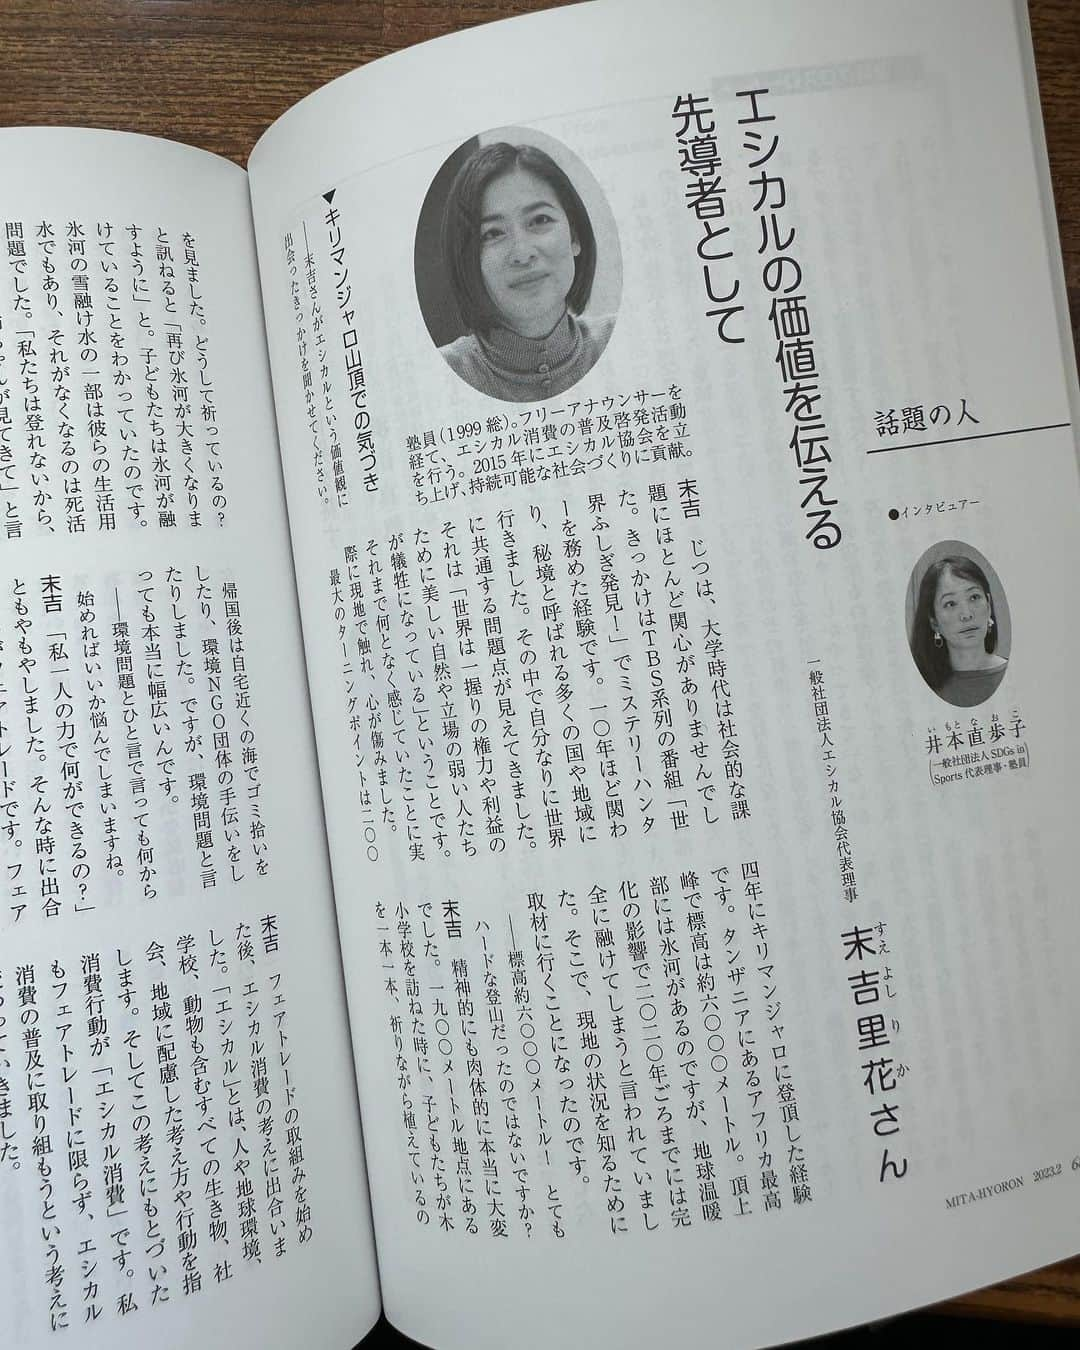 話題の人
●インタビュアー
井本直歩子
いもとなおこ
一般社団法人 SDGs in
Sports 代表理事・塾員
エシカルの価値を伝える
先導者として
一般社団法人エシカル協会代表理事
末吉里花さん
すえよしりか
塾員（1999 総）。フリーアナウンサーを
経て、エシカル消費の普及啓発活動
を行う。2015 年にエシカル協会を立
ち上げ、持続可能な社会づくりに貢献。
▼キリマンジャロ山頂での気づき
――末吉さんがエシカルという価値観に
出会ったきっかけを聞かせてください。
末吉　じつは、大学時代は社会的な課
題にほとんど関心がありませんでし
た。きっかけはＴＢＳ系列の番組「世
界ふしぎ発見！」でミステリーハンタ
ーを務めた経験です。一〇年ほど関わ
り、秘境と呼ばれる多くの国や地域に
行きました。その中で自分なりに世界
に共通する問題点が見えてきました。
それは「世界は一握りの権力や利益の
ために美しい自然や立場の弱い人たち
が犠牲になっている」ということです。
それまで何となく感じていたことに実
際に現地で触れ、心が傷みました。
最大のターニングポイントは二〇〇
四年にキリマンジャロに登頂した経験
です。タンザニアにあるアフリカ最高
峰で標高は約六〇〇〇メートル。頂上
部には氷河があるのですが、地球温暖
化の影響で二〇二〇年ごろまでには完
全に融けてしまうと言われていまし
た。そこで、現地の状況を知るために
取材に行くことになったのです。
――標高約六〇〇〇メートル！　とても
ハードな登山だったのではないですか？
末吉　精神的にも肉体的に本当に大変
でした。一九〇〇メートル地点にある
小学校を訪ねた時に、子どもたちが木
を一本一本、祈りながら植えているの
MITA-HYORON　2023.2
を見ました。どうして祈っているの？
と訊ねると「再び氷河が大きくなりま
すように」と。子どもたちは氷河が融
けていることをわかっていたのです。
氷河の雪融け水の一部は彼らの生活用
水でもあり、それがなくなるのは死活
問題でした。「私たちは登れないから、
帰国後は自宅近くの海でゴミ拾いを
したり、環境ＮＧＯ団体の手伝いをし
たりしました。ですが、環境問題と言
っても本当に幅広いんです。
――環境問題とひと言で言っても何から
始めればいいか悩んでしまいますね。
末吉　「私一人の力で何ができるの？」
ともやもやしました。そんな時に出合
末吉　フェアトレードの取組みを始め
た後、エシカル消費の考えに出合いま
した。「エシカル」とは、人や地球環境、
学校、動物も含むすべての生き物、社
会、地域に配慮した考え方や行動を指
します。そしてこの考えにもとづいた
消費行動が「エシカル消費」です。私
もフェアトレードに限らず、エシカル
消費の普及に取り組もうという考えに